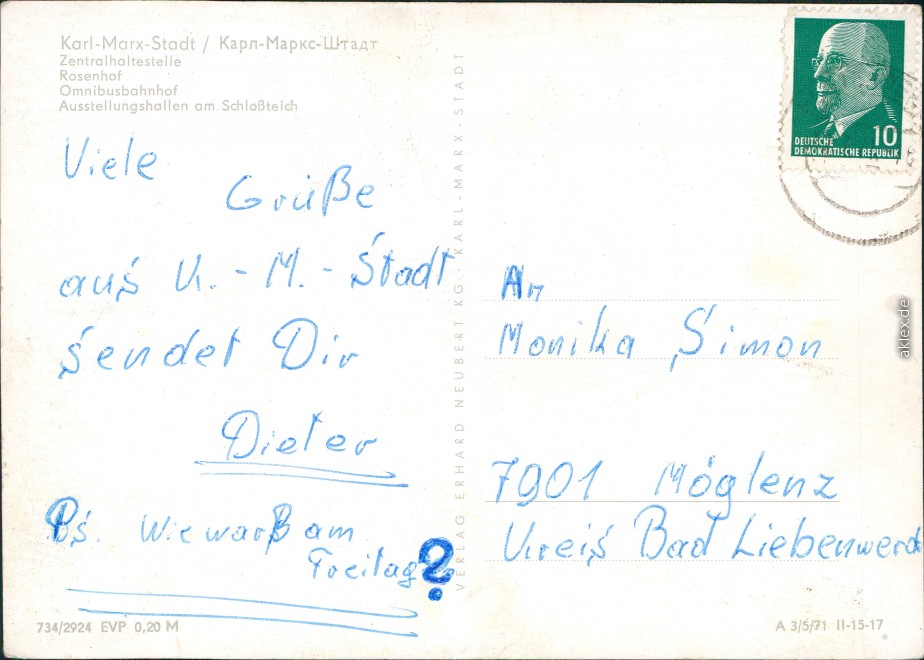 Karl-Marx-Stadt / Карл-Маркс-Штадт
Zentralhaltestelle
Rosenhof
Omnibusbahnhof
Ausstellungshallen am Schloßteich
Viele
Grüße
aus K.-M.-Stadt
sendet Dir
Dieter
Ps. Wie warß am
Freitag?
734/2924 EVP 0,20 M
VERLAG ERHARD NEUBERT KG · KARL-MARX-STADT
10
DEUTSCHE
DEMOKRATISCHE REPUBLIK
An
Monika Simon
7901 Möglenz
Kreis Bad Liebenwerd
A 3/5/71 II-15-17
aklex.de